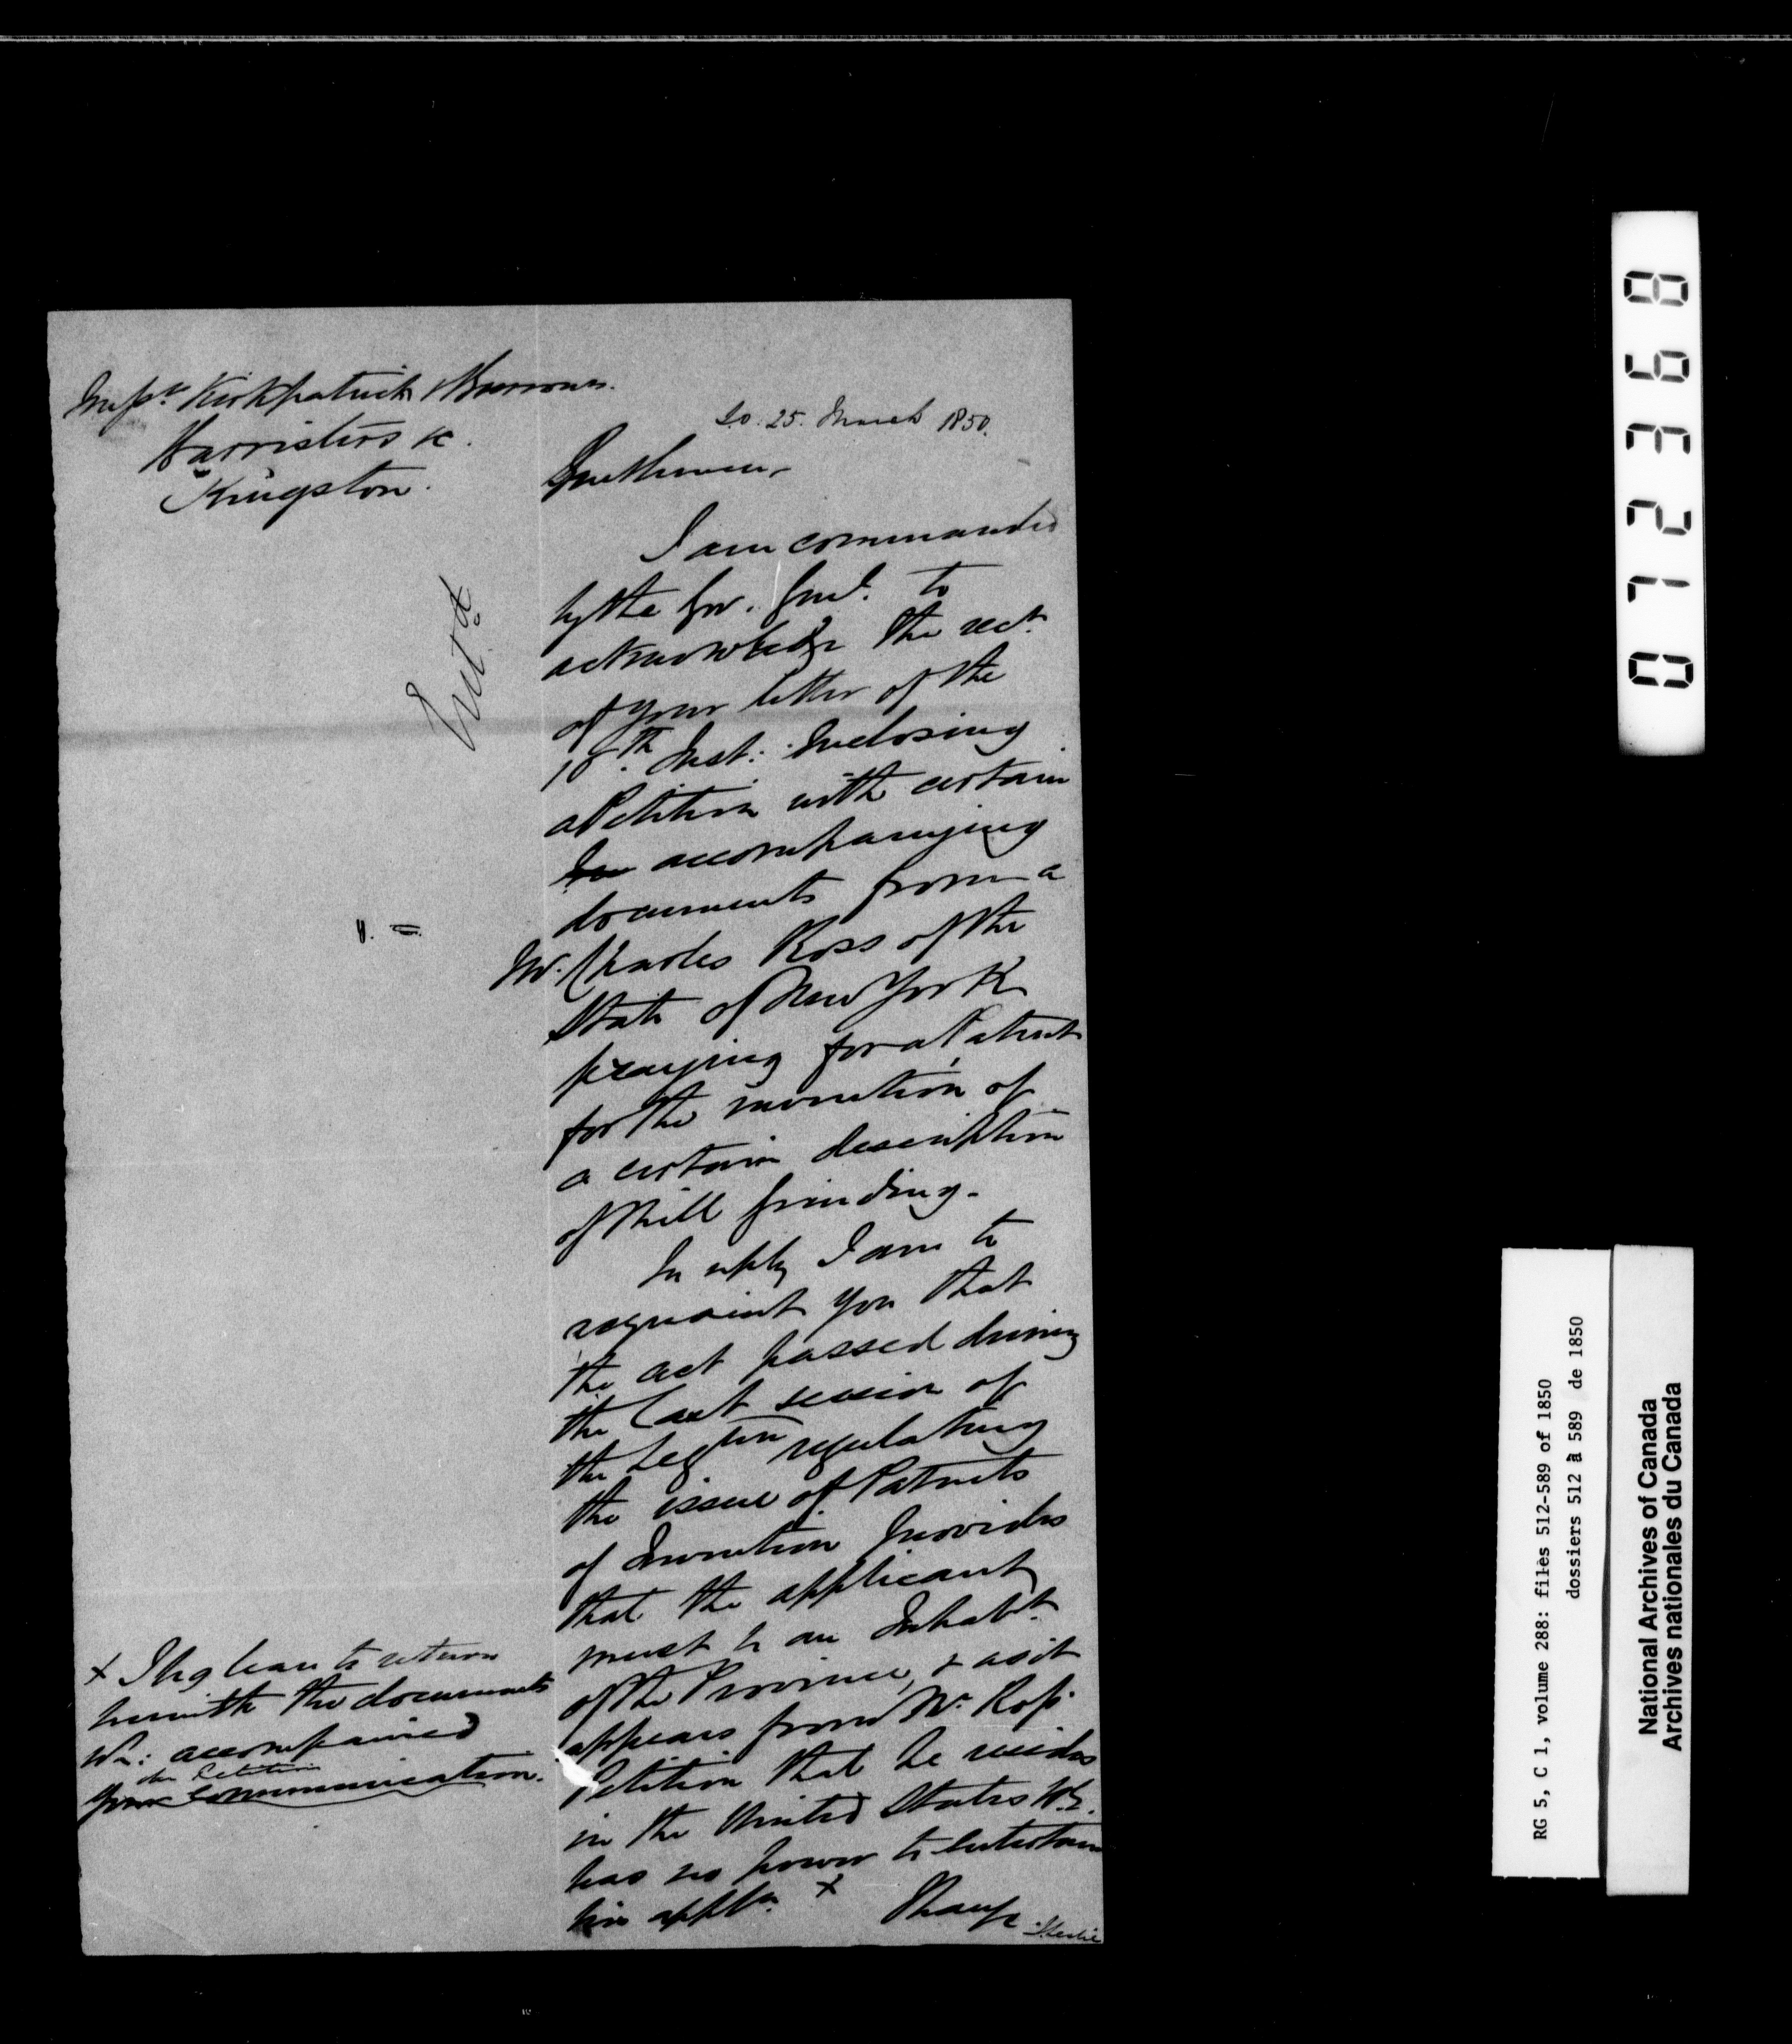 Messrs Kirkpatrick &
Barristers &c.
Kingston.
S.O. 25. March 1850.
Gentlemen,
I am commanded
by the Gov. Genl. to
acknowledge the rect.
of your letter of the
18th. Inst: Inclosing
a Petition with certain
accompanying
documents from a
Mr. Charles Ross of the
State of New York
praying for a Patent
for the invention of
a certain description
of Mill Grinding.
In reply I am to
acquaint you that
the act passed during
the last session of
the Legture regulating
the issue of Patents
of Invention provides
that the applicant
must be an Inhabt.
of the Province, & as it
appears from Mr. Ross'
Petition that he resides
in the United States H.E.
has no power to entertain
his appln. +
I have &c
J. Leslie
Entd
+ I beg leave to return
herewith the documents
wh: accompanied
the Petition
your communication.
072368
RG 5, C 1, volume 288: files 512-589 of 1850
dossiers 512 à 589 de 1850
National Archives of Canada
Archives nationales du Canada